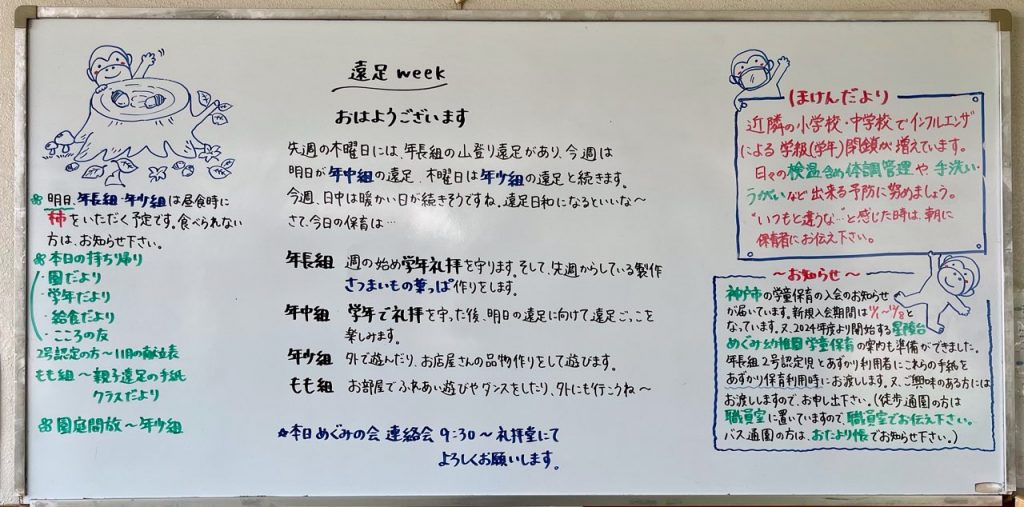 遠足week
おはようございます
先週の木曜日には、年長組の山登り遠足があり、今週は
明日が年中組の遠足、木曜日は年少組の遠足と続きます。
今週、日中は暖かい日が続きそうですね。遠足日和になるといいな～
さて、今日の保育は…
年長組 週の始め学年礼拝を守ります。そして、先週からしている製作
さつまいもの葉っぱ作りをします。
年中組 学年で礼拝を守った後、明日の遠足に向けて遠足ごっこを
楽しみます。
年少組 外で遊んだり、お店屋さんの品物作りをして遊びます。
もも組 お部屋でふれあい遊びやダンスをしたり、外にも行こうね～
☆本日めぐみの会 連絡会 9:30～礼拝堂にて
よろしくお願いします。
明日、年長組・年少組は昼食時に
柿をいただく予定です。食べられない
方は、お知らせ下さい。
本日の持ち帰り
・園だより
・学年だより
・給食だより
・こころの友
2号認定の方～11月の献立表
もも組～親子遠足の手紙
クラスだより
園庭開放～年少組
ほけんだより
近隣の小学校・中学校でインフルエンザ
による学級(学年)閉鎖が増えています。
日々の検温含め体調管理や手洗い・
うがいなど出来る予防に努めましょう。
"いつもと違うな…"と感じた時は、朝に
保育者にお伝え下さい。
～お知らせ～
神戸市の学童保育の入会のお知らせ
が届いています。新規入会期間は11/1～12/8と
なっています。又、2024年度より開始する星陵台
めぐみ幼稚園学童保育の案内も準備ができました。
年長組2号認定児とあずかり利用者にこれらの手紙を
あずかり保育利用時にお渡しします。又、ご興味のある方には
お渡ししますので、お申し出下さい。(徒歩通園の方は
職員室に置いていますので、職員室でお伝え下さい。
バス通園の方は、おたより帳でお知らせ下さい。)